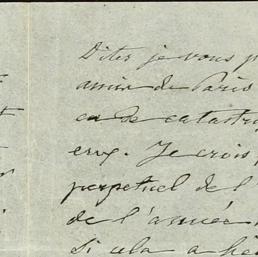 Dites je vous p
amis de Paris
cas de catastro
eux. Je crois
perpetuel de l'
de l'année
Si cela a